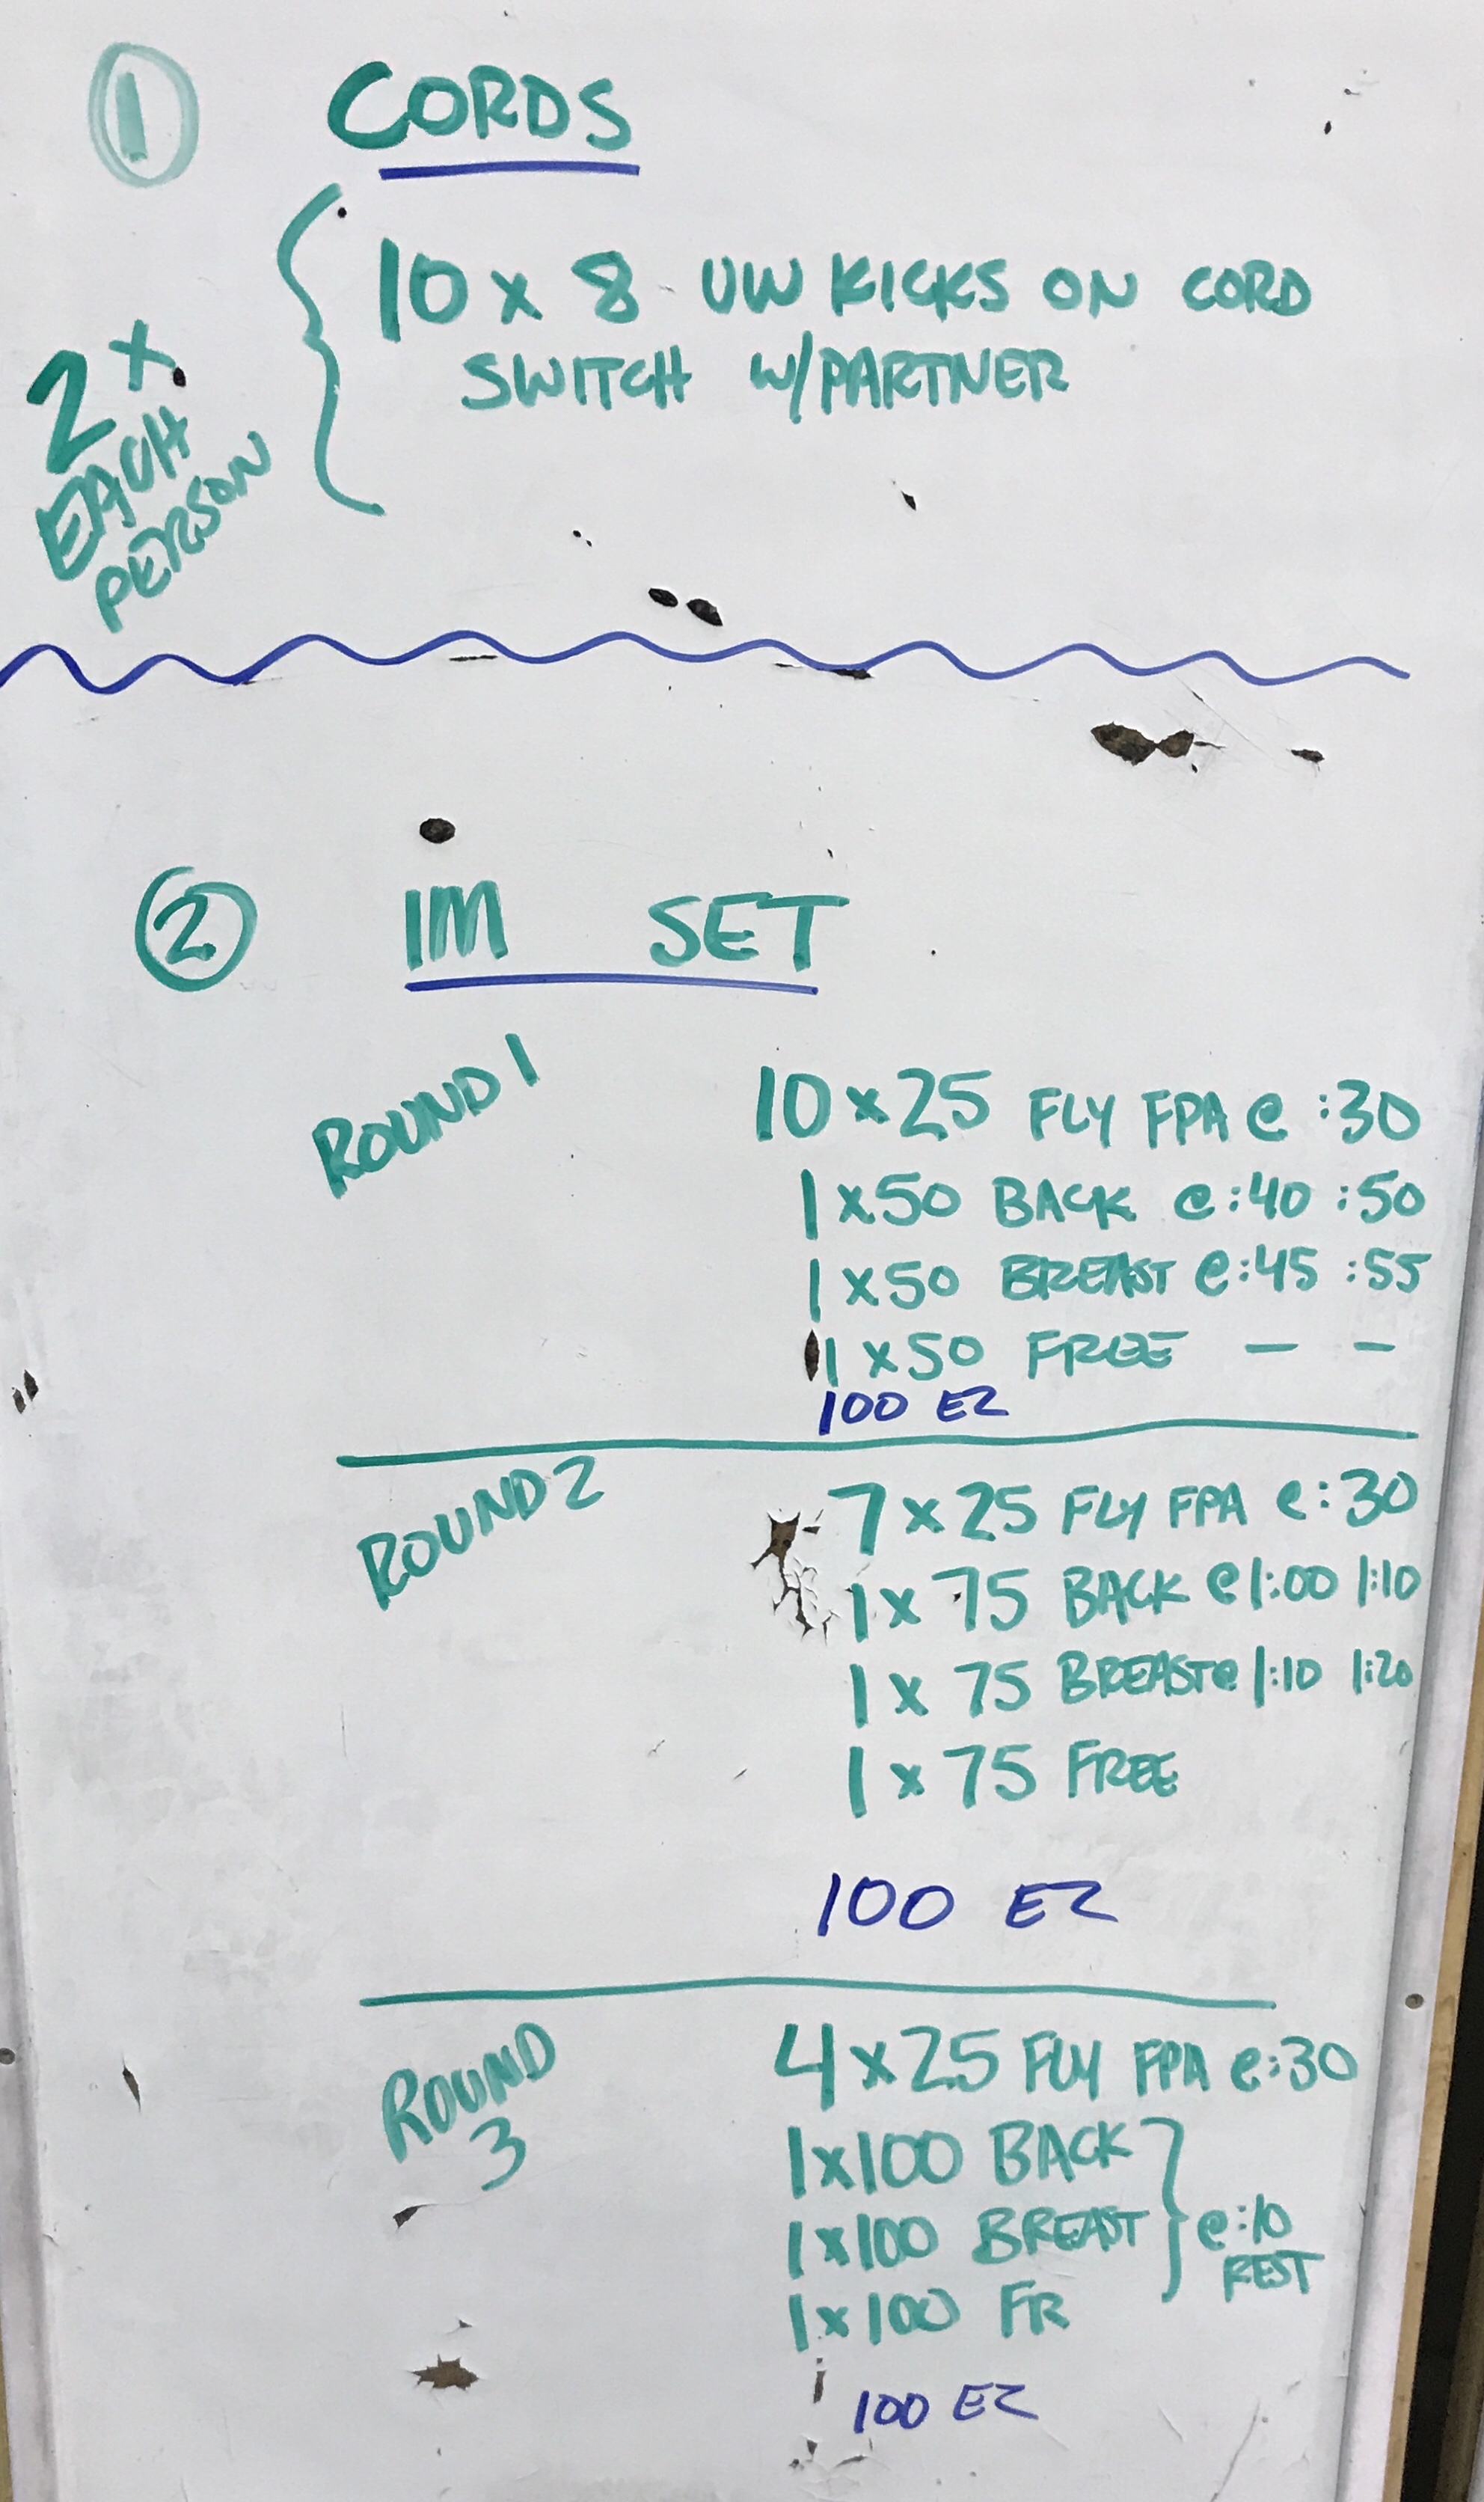 1 CORDS
10 x 8 UW KICKS ON CORD
SWITCH W/PARTNER
2x
EACH
PERSON
2 IM SET
ROUND 1
10 x 25 FLY FPA @ :30
1 x 50 BACK @ :40 :50
1 x 50 BREAST @ :45 :55
1 x 50 FREE — —
100 EZ
ROUND 2
7 x 25 FLY FPA @ :30
1 x 75 BACK @ 1:00 1:10
1 x 75 BREAST @ 1:10 1:20
1 x 75 FREE
100 EZ
ROUND
3
4 x 25 FLY FPA @ :30
1 x 100 BACK
1 x 100 BREAST
@ :10
REST
1 x 100 FR
100 EZ